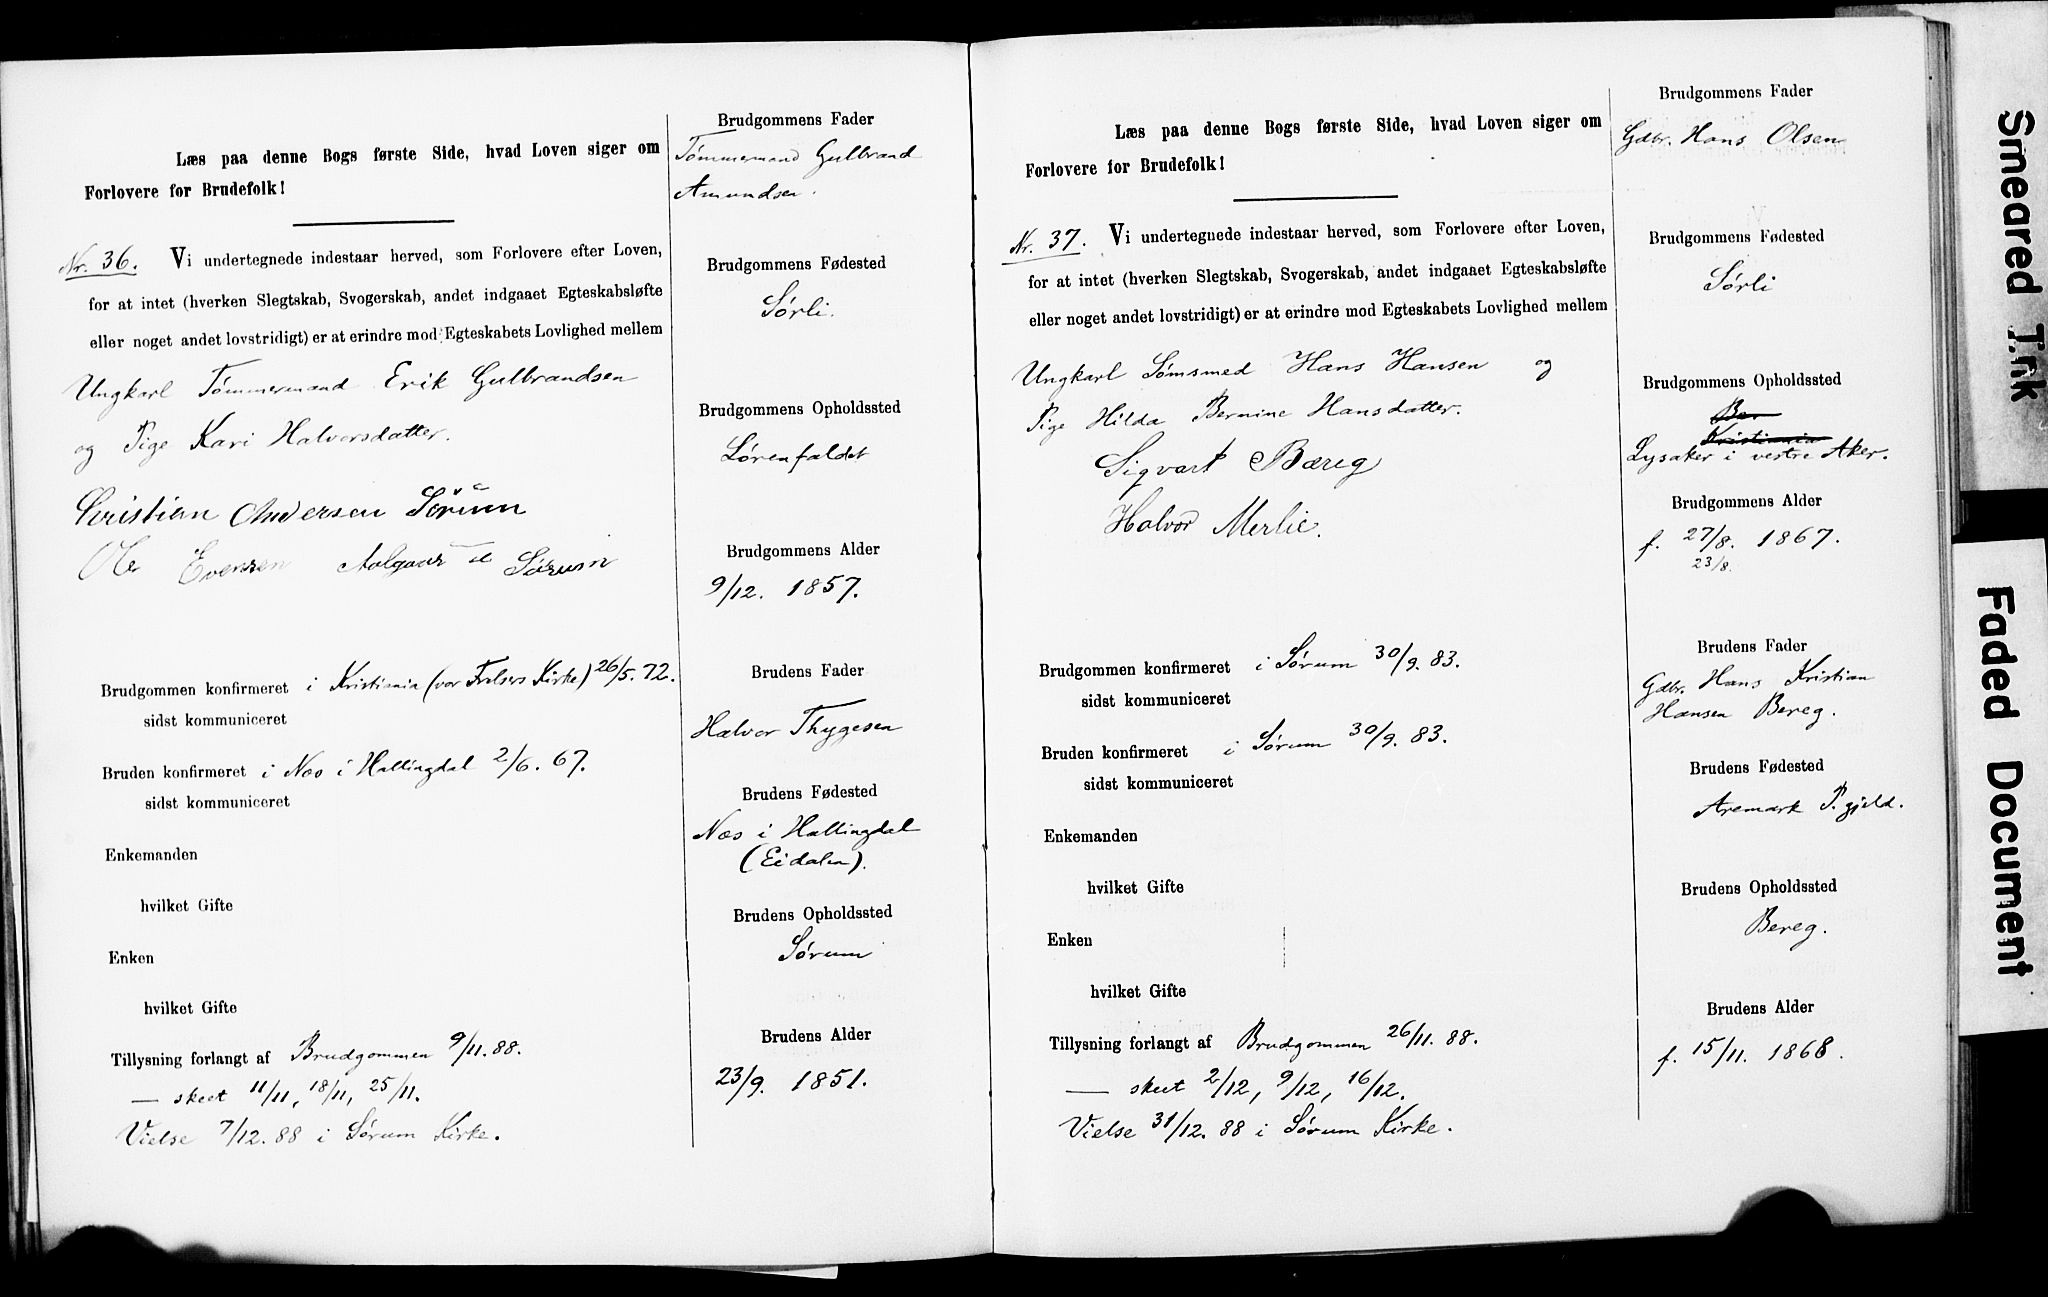 Læs paa denne Bogs første Side, hvad Loven siger om
Forlovere for Brudefolk!
Nr. 36. Vi undertegnede indestaar herved, som Forlovere efter Loven,
for at intet (hverken Slegtskab, Svogerskab, andet indgaaet Egteskabsløfte
eller noget andet lovstridigt) er at erindre mod Egteskabets Lovlighed mellem
Ungkarl Tømmermand Erik Gulbrandsen
og Pige Kari Halvorsdatter.
Christian Andersen Sørum
Ole Evensen Aalgaar Sørum
Brudgommen konfirmeret i Kristiania (vor Frelsers Kirke) 26/5. 72.
sidst kommuniceret
Bruden konfirmeret i Næs i Hallingdal 2/6. 67.
sidst kommuniceret
Enkemanden
hvilket Gifte
Enken
hvilket Gifte
Tillysning forlangt af Brudgommen 9/11. 88.
— skeet 11/11, 18/11, 25/11.
Vielse 7/12. 88 i Sørum Kirke.
Brudgommens Fader
Tømmermand Gulbrand
Amundsen.
Brudgommens Fødested
Sørli.
Brudgommens Opholdssted
Lørenfaldet
Brudgommens Alder
9/12. 1857.
Brudens Fader
Halvor Thygesen
Brudens Fødested
Næs i Hallingdal
(Eidalen).
Brudens Opholdssted
Sørum
Brudens Alder
23/9. 1851.
Læs paa denne Bogs første Side, hvad Loven siger om
Forlovere for Brudefolk!
Nr. 37. Vi undertegnede indestaar herved, som Forlovere efter Loven,
for at intet (hverken Slegtskab, Svogerskab, andet indgaaet Egteskabsløfte
eller noget andet lovstridigt) er at erindre mod Egteskabets Lovlighed mellem
Ungkarl Sømsmed Hans Hansen og
Pige Hilda Bernine Hansdatter.
Sigvart Bæreg
Halvor Merlie.
Brudgommen konfirmeret i Sørum 30/9. 83.
sidst kommuniceret
Bruden konfirmeret i Sørum 30/9. 83.
sidst kommuniceret
Enkemanden
hvilket Gifte
Enken
hvilket Gifte
Tillysning forlangt af Brudgommen 26/11. 88.
— skeet 2/12, 9/12, 16/12.
Vielse 31/12. 88 i Sørum Kirke.
Brudgommens Fader
Gdbr. Hans Olsen
Brudgommens Fødested
Sørli
Brudgommens Opholdssted
Ber
Kristiania
Lysaker i vestre Aker.
Brudgommens Alder
f. 27/8. 1867.
23/8.
Brudens Fader
Gdbr. Hans Kristian
Hansen Bereg.
Brudens Fødested
Aremark P.gjeld.
Brudens Opholdssted
Bereg.
Brudens Alder
f. 15/11. 1868.
Smeared Ink
Faded Document